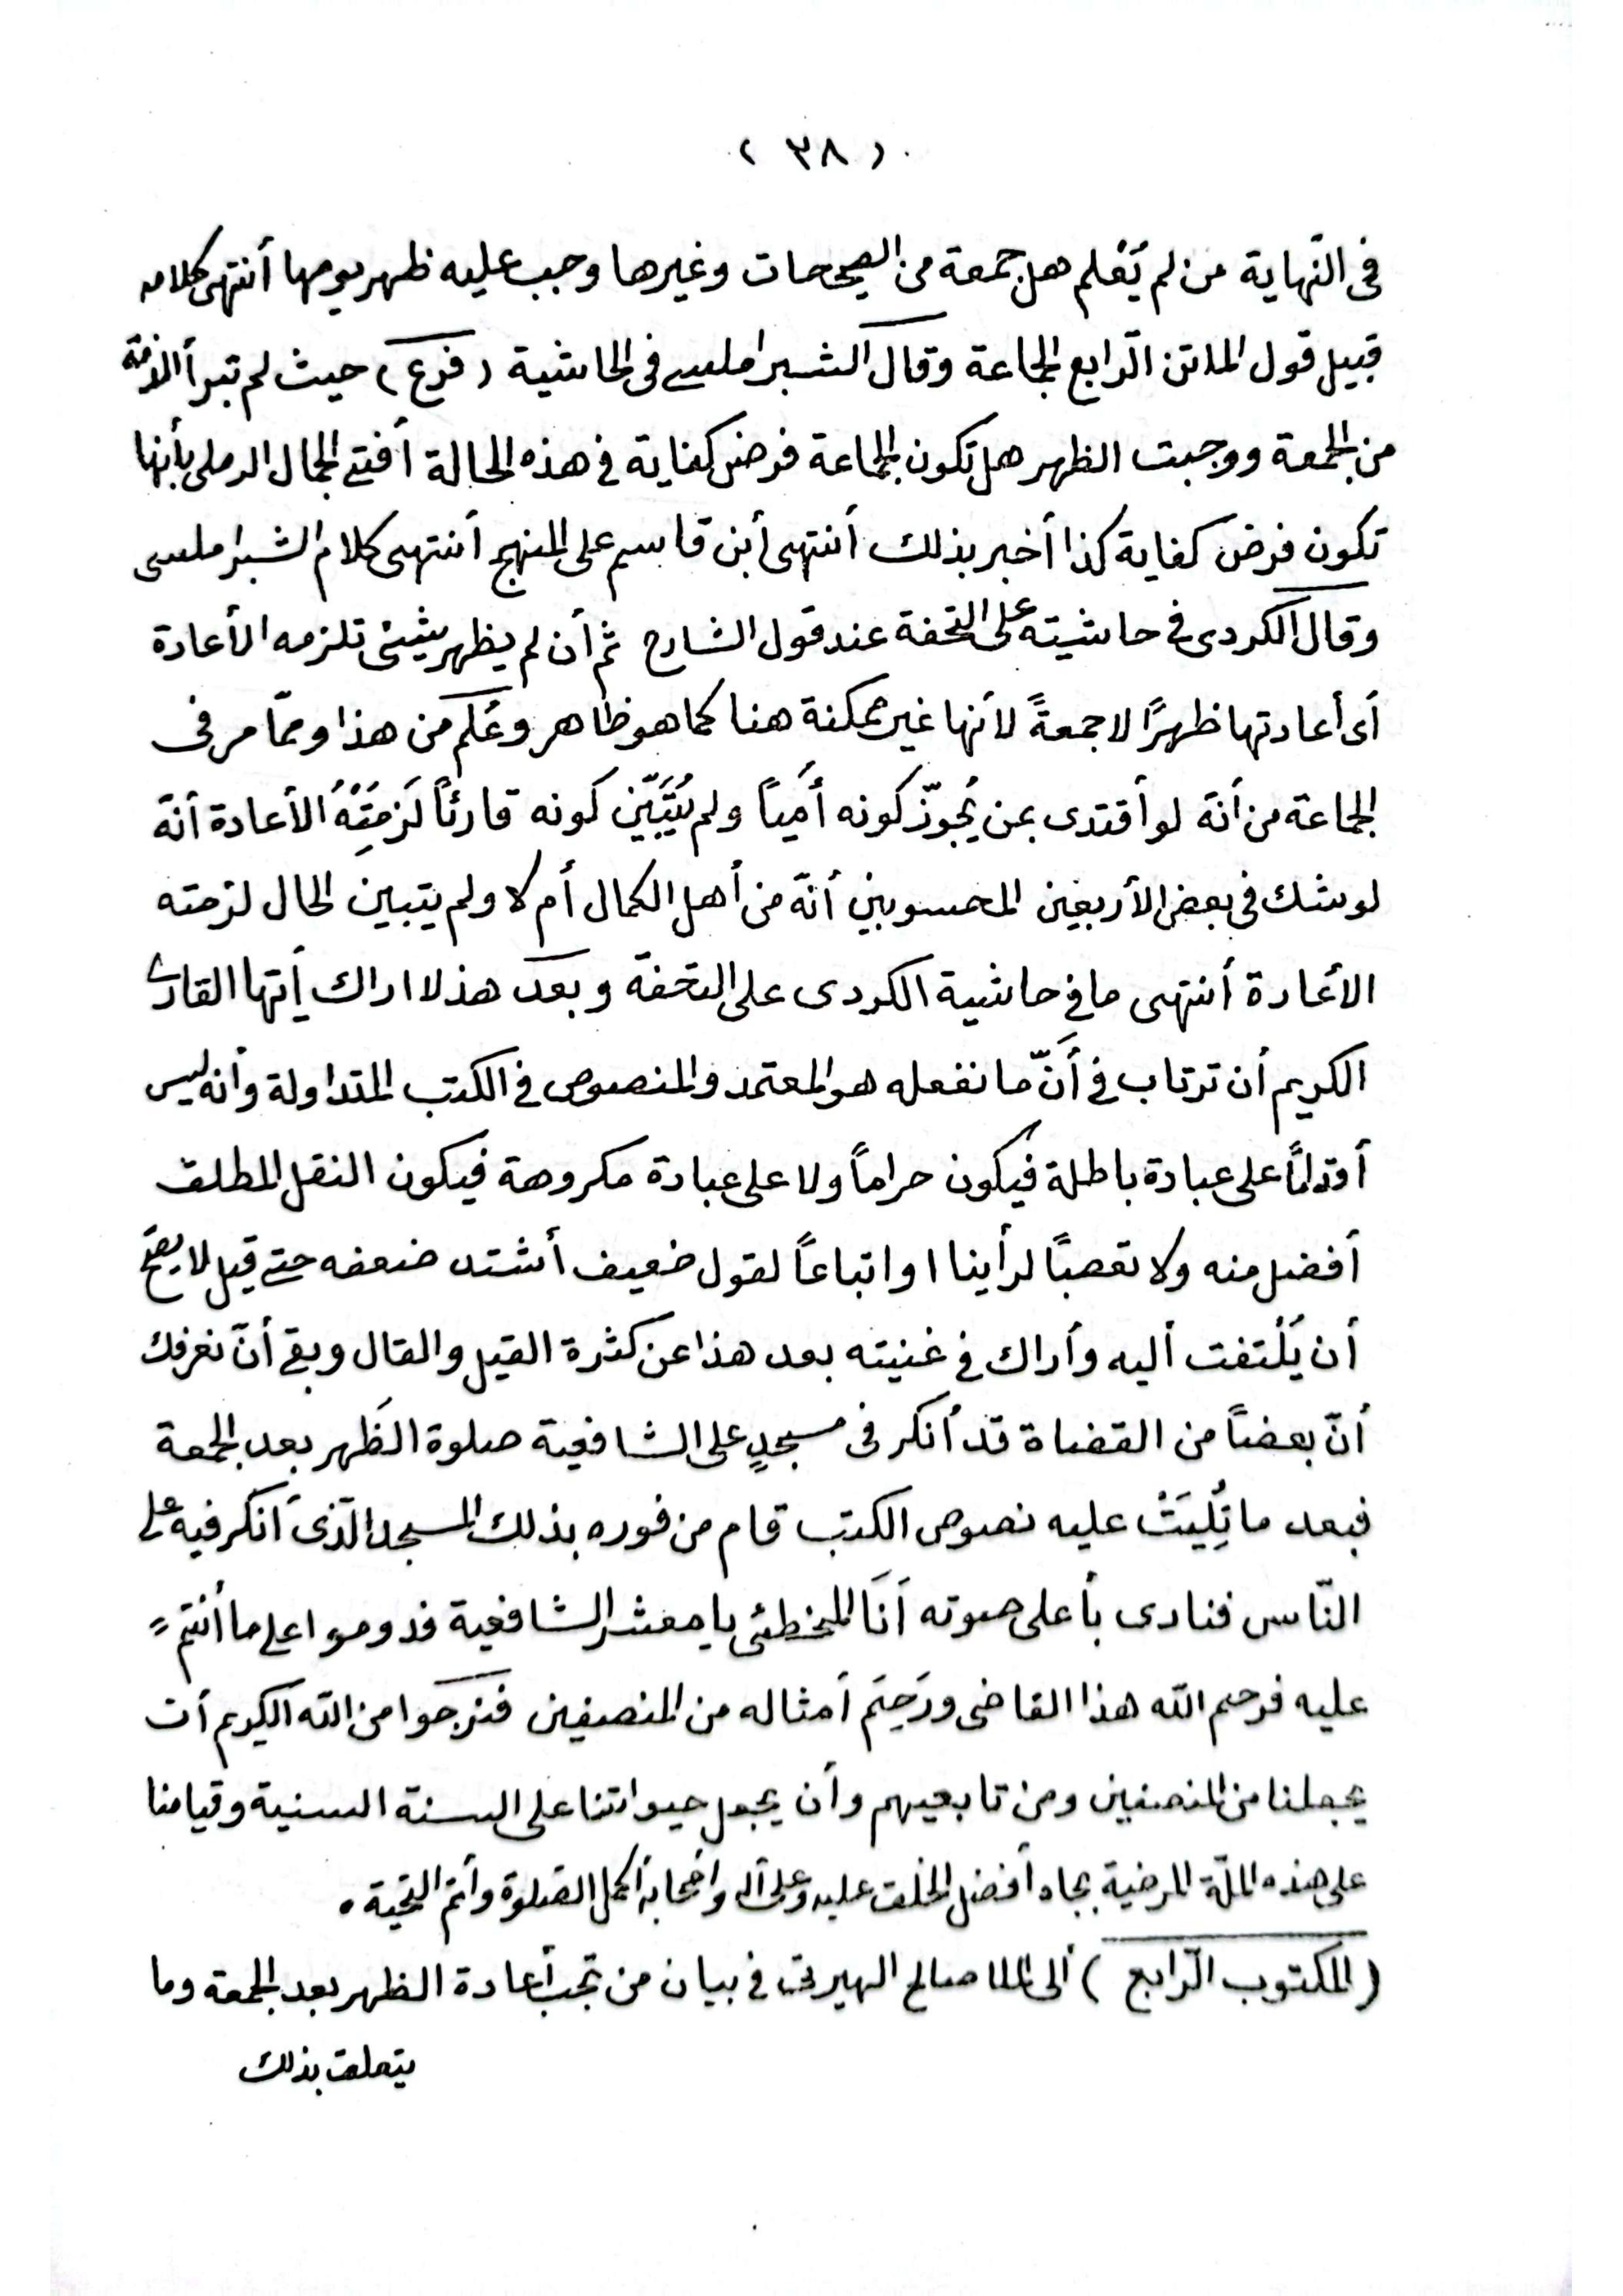 ( ٣٨ )
فى النّهاية من لم يَعْلم هل جمعة من الصحيحات وغيرها وجب عليه ظهر يومها أنتهى كلامه
قبيل قول الماتن الرّابع الجماعة وقال الشبراملسى فى الحاشية ( فرع ) حيث لم تبرأ الذمّة
من الجمعة ووجبت الظهر هل تكون الجماعة فرض كفاية فى هذه الحالة أفتى الجمال الرملى بأنها
تكون فرض كفاية كذا أخبر بذلك أنتهى أبن قاسم على المنهج أنتهى كلام الشبراملسى
وقال الكردى فى حاشيته على التحفة عند قول الشارح ثم أن لم يظهر شيئ تلزمه الأعادة
أى أعادتها ظهرًا لا جمعةً لأنها غير ممكنة هنا كما هو ظاهر وعُلم من هذا وممّا مر فى
الجماعة من أنّه لو أقتدى بمن يُجوّز كونه أميًا ولم يُتَبَيّن كونه قارئًا لَزِمَتْهُ الأعادة أنّه
لو شك فى بعض الأربعين المحسوبين أنّه من أهل الكمال أم لا ولم يتبين الحال لزمته
الأعادة أنتهى ما فى حاشية الكردى على التحفة وبعد هذ لا اراك أيّها القارئ
الكريم أن ترتاب فى أنّ ما نفعله هو المعتمد والمنصوص فى الكتب المتداولة وأنه ليس
أقدامًا على عبادة باطلة فيكون حرامًا ولا على عبادة مكروهة فيكون النفل المطلق
أفضل منه ولا تعصبًا لرأينا او اتباعًا لقول ضعيف أشتد ضعفه حتى قيل لا يصحّ
أن يُلْتفت أليه وأراك فى غنيته بعد هذا عن كثرة القيل والقال وبقى أنّ نعرفك
أنّ بعضًا من القضاة قد أنكر فى مسجدٍ على الشافعية صلوة الظهر بعد الجمعة
فبعد ما تُلِيَتْ عليه نصوص الكتب قام من فوره بذلك المسجد الّذى أنكر فيه على
النّاس فنادى بأعلى صوته أنَا المخطئى يا معشر الشافعية فدوموا على ما أنتم
عليه فرحم اللّه هذا القاضى ورَحِمَ أمثاله من المنصفين فنرجوا من اللّه الكريم أن
يجعلنا من المنصفين ومن تابعيهم وأن يجعل حيواتنا على السنة السنية وقيامنا
على هذه الملّة المرضية بجاه أفضل الخلق عليه وعلى آله واصحابه أكمل الصّلوة وأتمّ التّحية ه
( المكتوب الرّابع ) ألى الملا صالح الهيرتى فى بيان من تجب أعادة الظهر بعد الجمعة وما
يتعلق بذلك